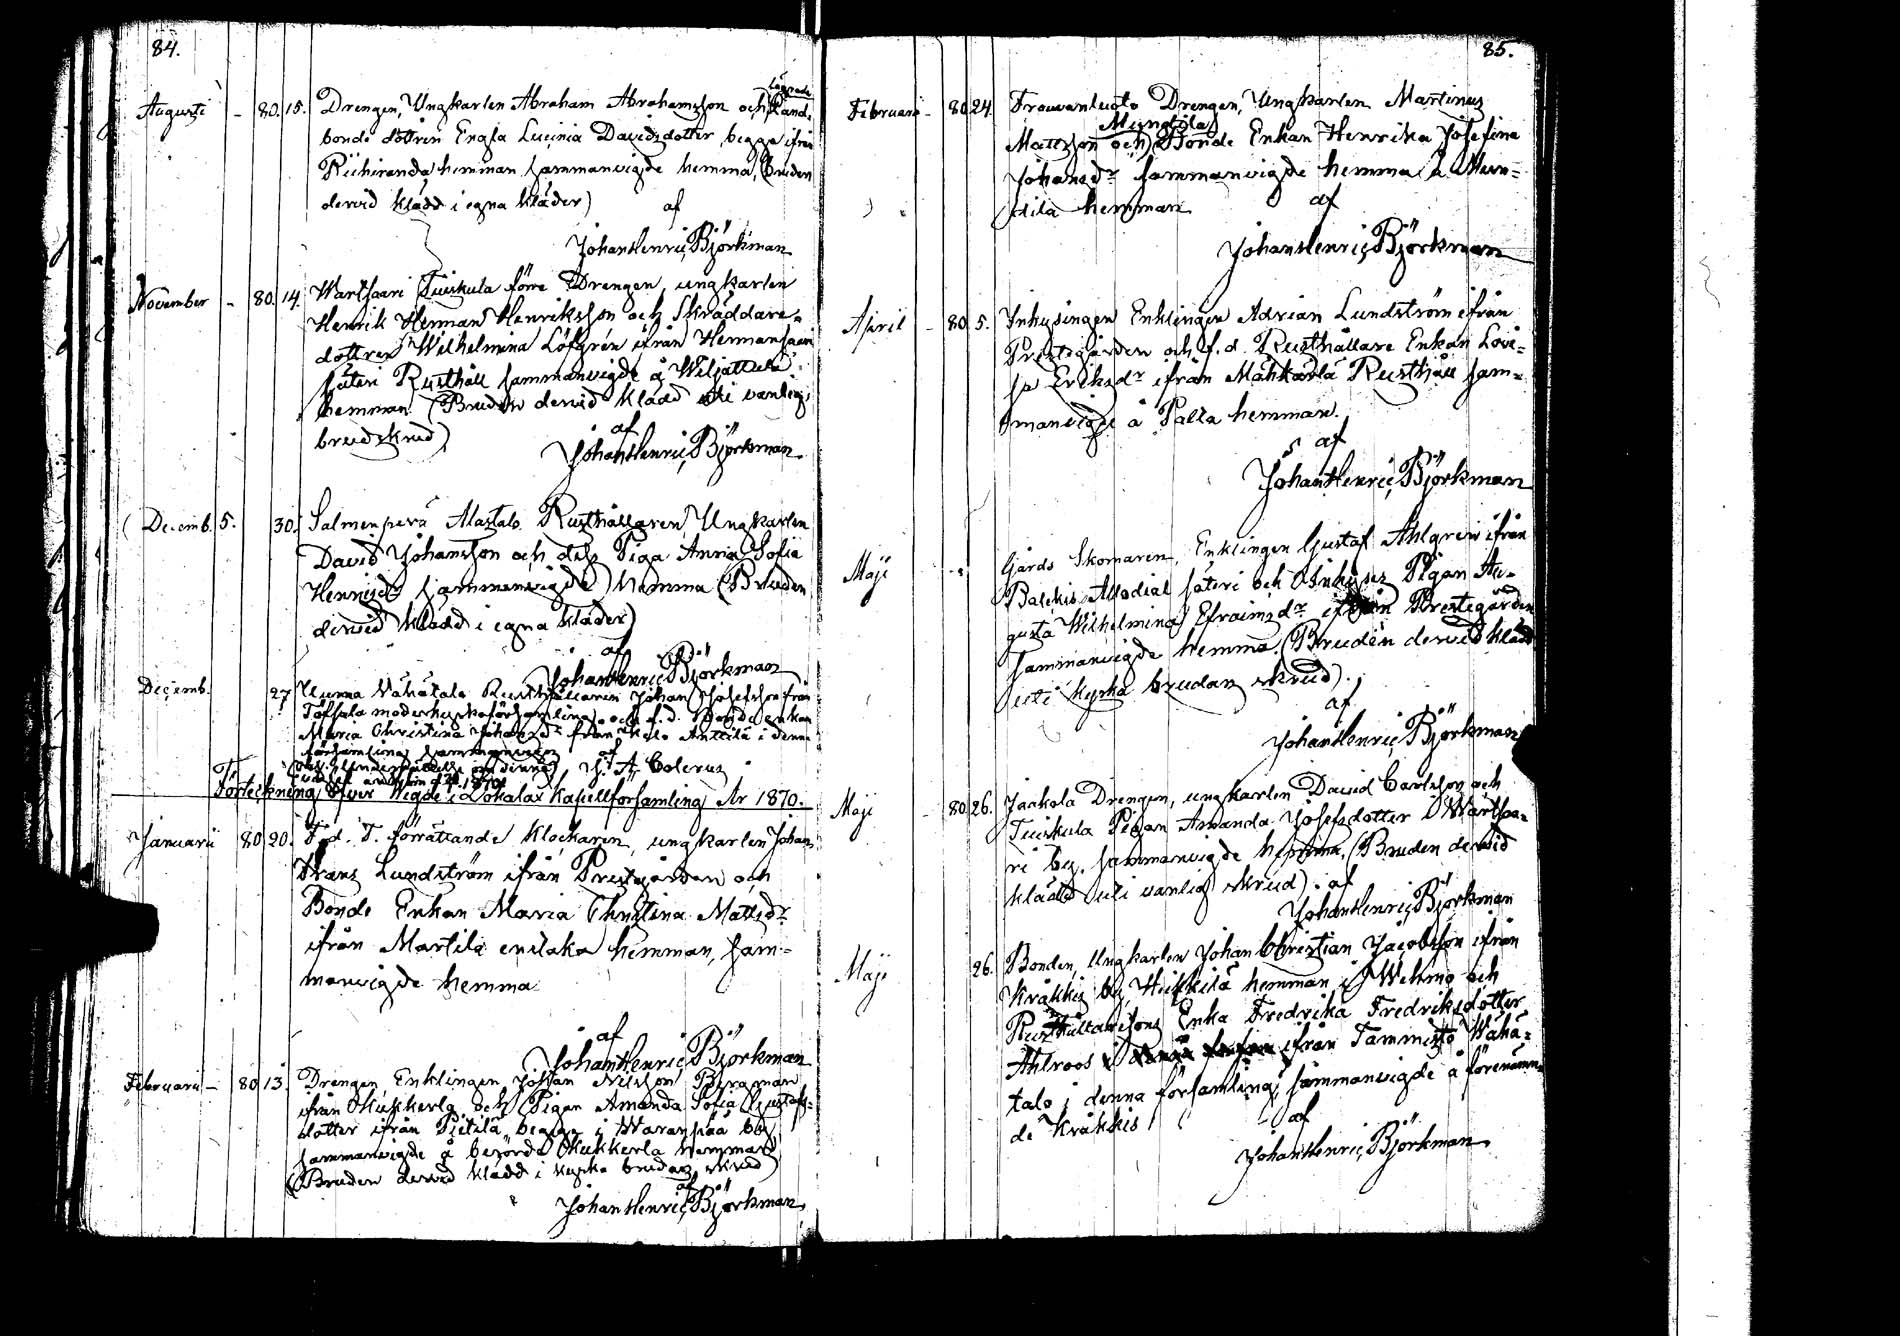 84.
Augusti - 80. 15. Drengen, Ungkarlen Abraham Abrahamsson och Land-
bonde dottren Engla Lucinia Davidsdotter, begge ifrån
Riihiranda hemman sammanvigde hemma, (Bruden
dervid klädd i egna kläder) af
Johan Henric Björkman
November - 80. 14. Wartsaari Tuiskula förre Drengen, ungkarlen
Henrik Herman Henriksson och Skräddare-
dottren Wilhelmina Löfgrén ifrån Hermansaari
säteri Rusthåll sammanvigde å
hemman (Bruden dervid klädd uti vanlig
brudskrud)
af
Johan Henric Björkman
Decemb. 5. 30. Salmenperä Alastalo Rusthållaren, Ungkarlen
David Johansson och dess Piga Anna Sofia
sammanvigde hemma (Bruden
dervid klädd i egna kläder)
af
Johan Henric Björkman
Decemb. 27 Wähätalo Rusthållaren Johan Josefsson från
Töfsala moderkyrkoförsamling och f.d. Bonde enkan
Maria Christina Johansdr från Anttila i denna
församling sammanvigde af
Förteckning öfver Wigde i Lokalax Kapellförsamling År 1870.
Januarii 80 20. T. förrättande Klockaren, ungkarlen Johan
Frans Lundström ifrån Prestgården och
Bonde Enkan Maria Christina Mattsdr
ifrån Martila enstaka hemman, sam-
manvigde hemma
af
Johan Henric Björkman
Februarii - 80 13. Drengen, Enklingen Johan Nilsson Bergman
ifrån Kukkerla och Pigan Amanda Sofia Gustafs-
dotter ifrån Pietilä begge i Waranpää by
sammanvigde å berörde Kukkerla hemman
(Bruden dervid klädd i kyrko brudas skrud)
af
Johan Henric Björkman
85.
Februarii - 80 24. Drengen, Ungkarlen Martinus
Mundila
Mattsson och Bonde Enkan Henrika Josefina
Johansdr sammanvigde hemma å Mun-
dila hemman
af
Johan Henric Björkman
April - 80 5. Inhysingen Enklingen Adrian Lundström ifrån
Prestegården och f.d. Rusthållare Enkan Lovi-
sa Eriksdr ifrån Mähkärlä Rusthåll sam-
manvigde å Palta hemman.
af
Johan Henric Björkman
Maji Gårds Skomaren, Enklingen Gustaf Ahlgren ifrån
Allodial säteri och Inhyses Pigan Au-
gusta Wilhelmina Efraimsdr ifrån Prestegården
sammanvigde hemma. (Bruden dervid klädd
uti kyrko brudas skrud).
af
Johan Henric Björkman
Maji - 80 26. Jaakola Drengen, ungkarlen David Carlsson och
Tuiskula Pigan Amanda Josefsdotter i Wartsaa-
ri by. sammanvigde hemma, (Bruden dervid
klädd uti vanlig skrud). af
Johan Henric Björkman
Maji 26. Bonden, Ungkarlen Johan Christian Jacobsson ifrån
Kräkkis by, Heikkilä hemman i Wehmo och
Rusthållaresons Enka Fredrika Fredriksdotter
Ahlroos ifrån Tammisto Wähä-
talo i denna församling, sammanvigde å förenämn-
de Kräkkis
af
Johan Henric Björkman